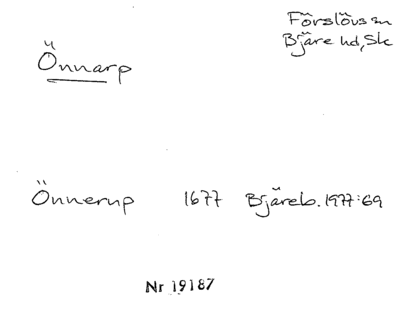 Förslövs sn
Bjäre hd, Sk
Önnarp
Önnerup 1677 Bjäreb. 1977:69
Nr 19187